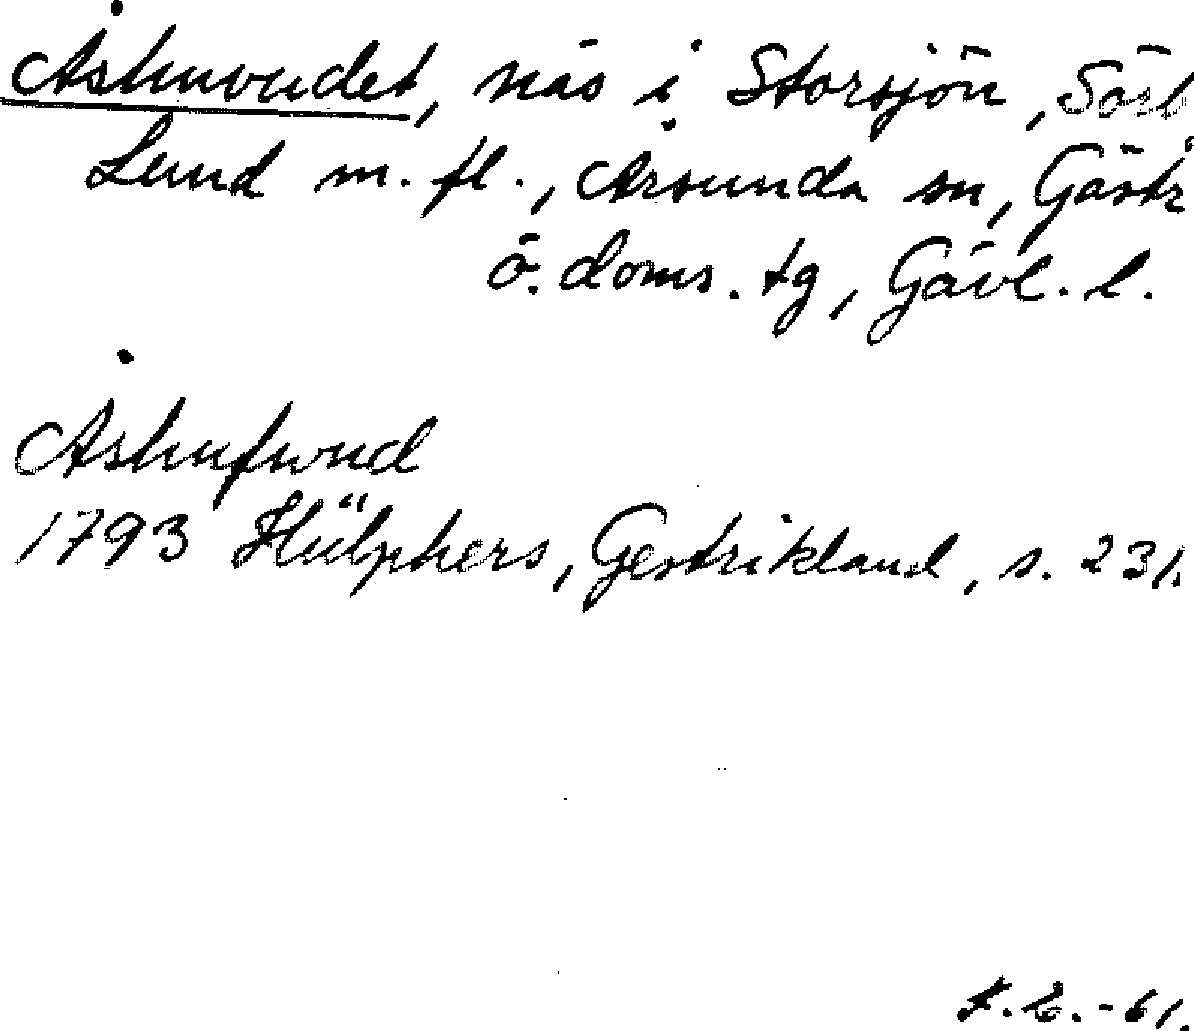 Åshuvudet, näs i Storsjön, Sörb
Lund m. fl., Årsunda sn, Gästr
ö. doms. tg, Gävl. l.
Åshufvud
1793 Hülphers, Gestrikland, s. 231.
-61.